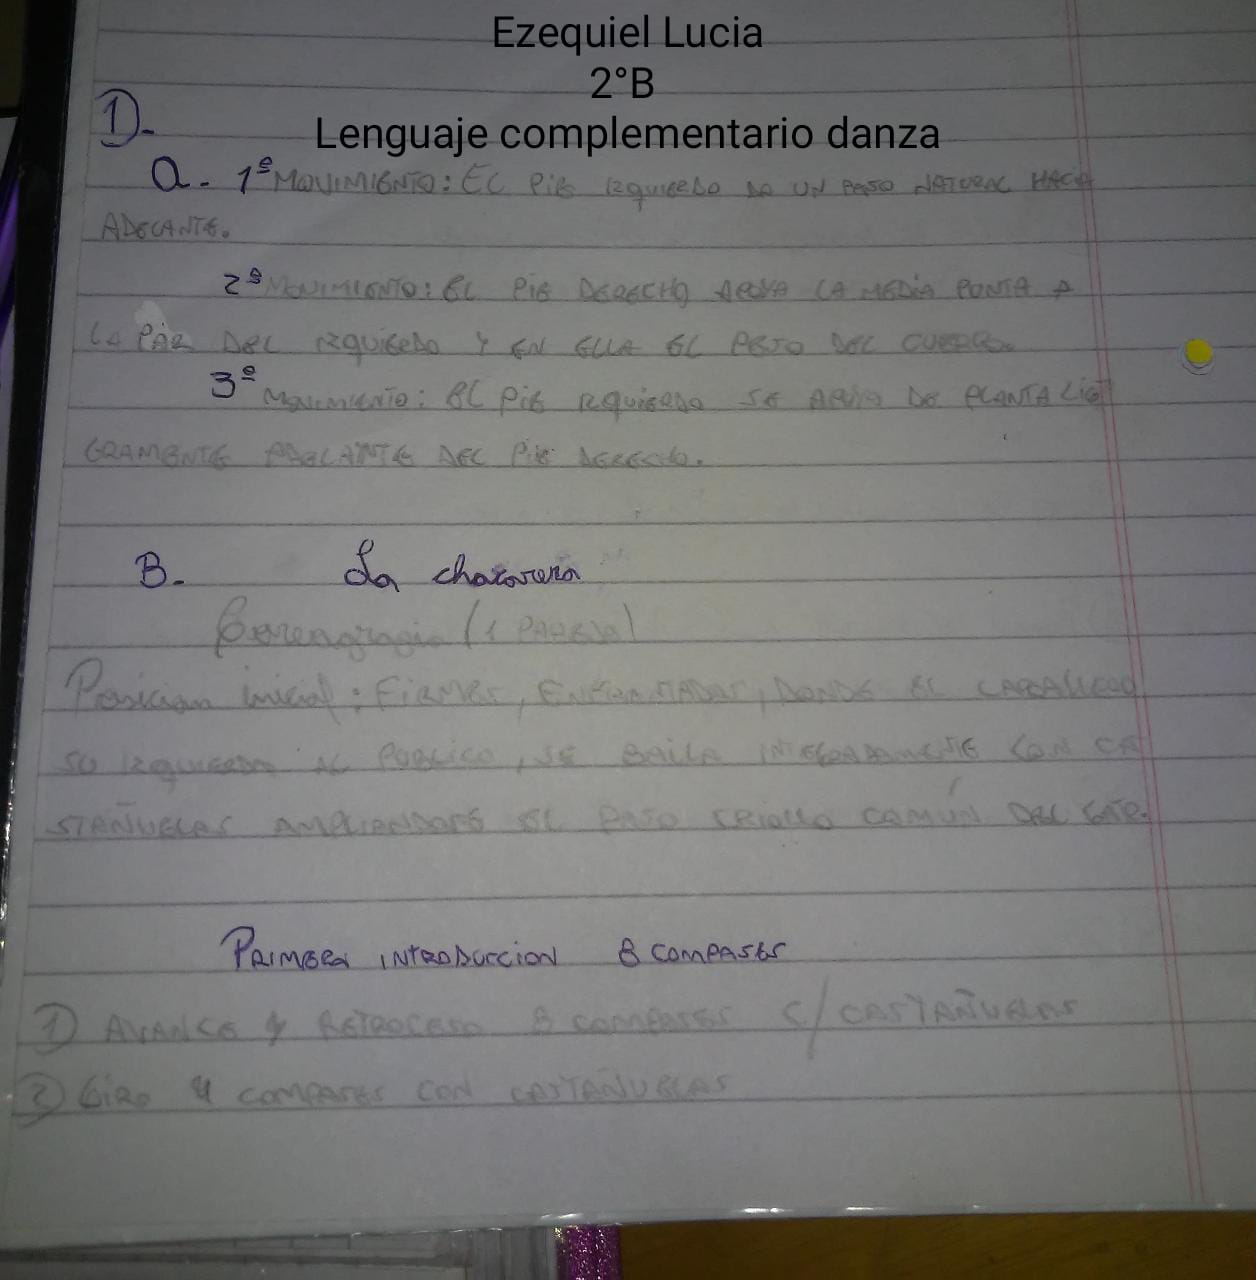 Ezequiel Lucia
2°B
Lenguaje complementario danza
1)-
a- 1º MOVIMIENTO: EL PIE IZQUIERDO DA UN PASO NATURAL HACIA
ADELANTE.
2º MOVIMIENTO: EL PIE DERECHO APOYA LA MEDIA PUNTA A
LA PAR DEL IZQUIERDO Y EN ELLA EL PESO DEL CUERPO.
3º MOVIMIENTO: EL PIE IZQUIERDO SE APOYA DE PLANTA LIG
ERAMENTE ADELANTE DEL PIE DERECHO.
B- La chacarera
Coreografia (1 PAREJA)
Posicion inicial: FIRMES, ENFRENTADOS, DONDE EL CABALLERO
SU IZQUIERDA AL PUBLICO, SE BAILA INTEGRAMENTE CON CA
STAÑUELAS EL PASO CRIOLLO COMÚN DEL GATO.
PRIMERA INTRODUCCION 8 COMPASES
1) AVANCE Y RETROCESO 8 COMPASES C/ CASTAÑUELAS
2) GIRO 4 COMPASES CON CASTAÑUELAS